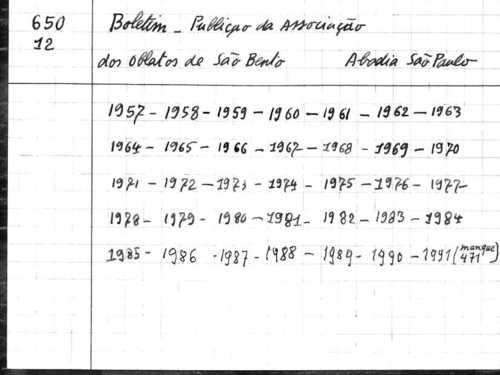 650
12
Boletim - Publiçao da Associação
dos Oblatos de São Bento Abadia São Paulo
1957 - 1958 - 1959 - 1960 - 1961 - 1962 - 1963
1964 - 1965 - 1966 - 1967 - 1968 - 1969 - 1970
1971 - 1972 - 1973 - 1974 - 1975 - 1976 - 1977
1978 - 1979 - 1980 - 1981 - 1982 - 1983 - 1984
1985 - 1986 - 1987 - 1988 - 1989 - 1990 - 1991 (manque 471)